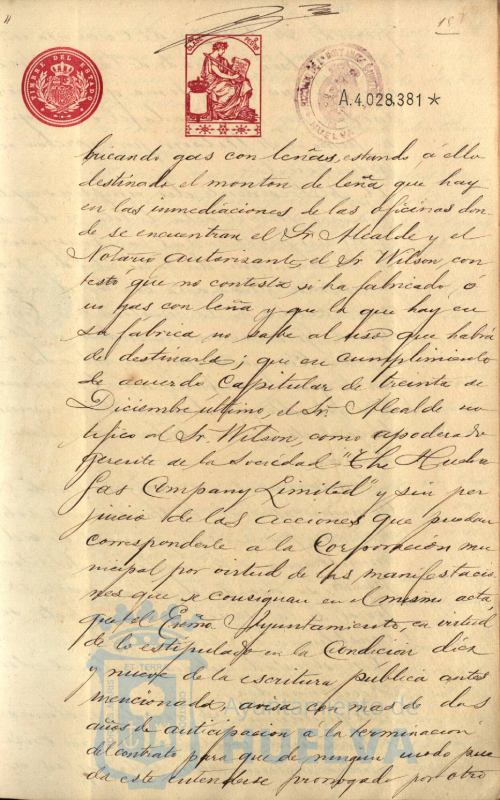 TIMBRE DEL ESTADO
HUELVA
A.4,028,381*
bricando gas con leñas, estando á ello
destinado el monton de leña que hay
en las inmediaciones de las oficinas don
de se encuentran el Sr. Alcalde y el
Notario autorizante, el Sr. Wilson con
testó que no contesta si ha fabricado ó
no gas con leña y que la que hay en
su fábrica no sabe al uso que habrá
de destinarla; que en cumplimiento
de acuerdo Capitular de treinta de
Diciembre último, el Sr. Alcalde no
tificó al Sr. Wilson, como apoderado
Gerente de la Sociedad "The Huelva
Gas Company Limited" y sin per
juicio de las acciones que puedan
corresponderle á la Corporación mu
nicipal por virtud de las manifestacio
nes que se consignan en el mismo acta,
que el Excmo. Ayuntamiento, en virtud
de lo estipulado en la Condicion diez
y nueve de la escritura pública antes
mencionada, avisa con mas de dos
años de anticipacion á la terminacion
del contrato para que de ningun modo pue
da este entenderse prorrogado por otro
Ayuntamiento de
HUELVA